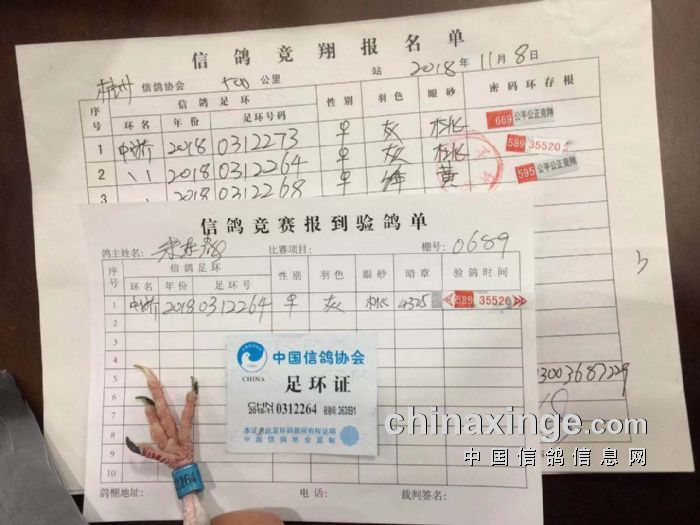 信鸽竞翔报名单
信鸽协会 500公里 站 2018年11月8日
序号 信鸽足环 性别 羽色 眼砂 密码环存根
环名 年份 足环号码
1 2018 0312273 灰 669 公平公正竞翔
2 〃 2018 0312264 灰 589 35520
3 〃 2018 0312268 黄 595 公平公正竞翔
信鸽竞赛报到验鸽单
鸽主姓名: 比赛项目: 棚号: 0689
序号 信鸽足环 性别 羽色 眼砂 暗章 验鸽时间
环名 年份 足环号
1 2018 0312264 灰 4325 589 35520
2
3
4
5
6
7
8
9
10
中国信鸽协会
CHINA
足环证
CHN
2018-11 0312264 校验码:363591
本证为此足环鸽所有权证明
中国信鸽协会监制
264
鸽棚地址: 电话: 裁判签名:
13003687229
chinaxinge.com
中国信鸽信息网